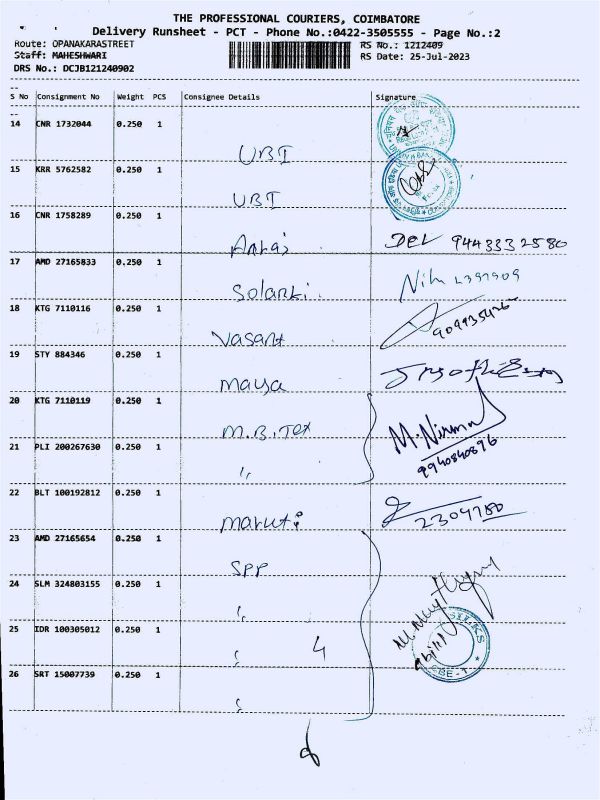 THE PROFESSIONAL COURIERS, COIMBATORE
Delivery Runsheet - PCT - Phone No.:0422-3505555 - Page No.:2
Route: OPANAKARASTREET RS No.: 1212409
Staff: MAHESHWARI RS Date: 25-Jul-2023
DRS No.: DCJB121240902
S No Consignment No Weight PCS Consignee Details Signature
14 CNR 1732044 0.250 1
UBI
15 KRR 5762582 0.250 1
UBI
16 CNR 1758289 0.250 1
DEL 9443332580
17 AMD 27165833 0.250 1
Solanki
18 KTG 7110116 0.250 1
Vasant
19 STY 884346 0.250 1
Maya
20 KTG 7110119 0.250 1
M.B.Tex M. Nirmal
21 PLI 200267630 0.250 1
" 9940840896
22 BLT 100192812 0.250 1
Maruti 2304780
23 AMD 27165654 0.250 1
SPP
24 SLM 324803155 0.250 1
25 IDR 100305012 0.250 1
4
SILKS
CBE-1
26 SRT 15007739 0.250 1